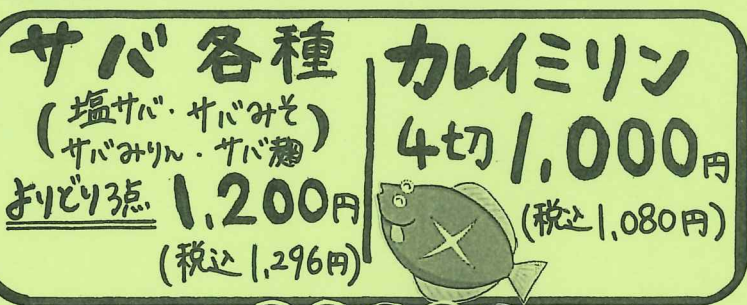 サバ各種
(塩サバ・サバみそ
サバみりん・サバ麹)
よりどり3点 1,200円
(税込1,296円)
カレイミリン
4切 1,000円
(税込1,080円)